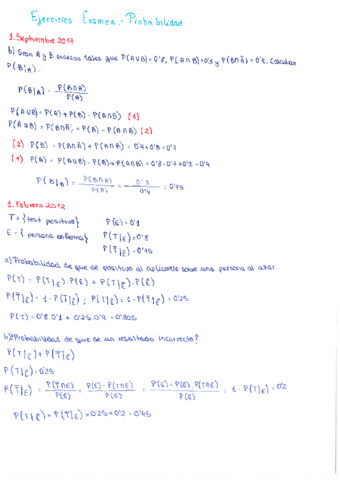 Ejercicios Examen.- Probabilidad
1. Septiembre 2017
b) Sean A y B sucesos tales que P(A∪B)=0'8, P(A∩B)=0'3 y P(B∩Ā)=0'4. Calcular
P(B|A).
P(B|A) = P(B∩A) / P(A)
P(A∪B) = P(A) + P(B) - P(A∩B) (1)
P(Ā∩B) = P(B∩Ā) = P(B) - P(A∩B) (2)
(2) P(B) = P(B∩Ā) + P(A∩B) = 0'4+0'3 = 0'7
(1) P(A) = P(A∪B) - P(B) + P(A∩B) = 0'8-0'7+0'3 = 0'4
P(B|A) = P(B∩A) / P(A) = 0'3 / 0'4 = 0'75
1. Febrero 2012
T = {test positivo} P(E) = 0'1
E = {persona enferma} P(T|E) = 0'8
P(T̄|Ē) = 0'75
a) Probabilidad de que de positivo al aplicarle sobre una persona al azar.
P(T) = P(T|E)·P(E) + P(T|Ē)·P(Ē)
P(T̄|Ē) = 1 - P(T|Ē) ; P(T|Ē) = 1 - P(T̄|Ē) = 0'25
P(T) = 0'8·0'1 + 0'25·0'9 = 0'305
b) ¿Probabilidad de que de un resultado incorrecto?
P(T|Ē) + P(T̄|E)
P(T|Ē) = 0'25
P(T̄|E) = P(T̄∩E) / P(E) = P(E) - P(T∩E) / P(E) = P(E) - P(E)·P(T|E) / P(E) = 1 - P(T|E) = 0'2
P(T|Ē) + P(T̄|E) = 0'25+0'2 = 0'45